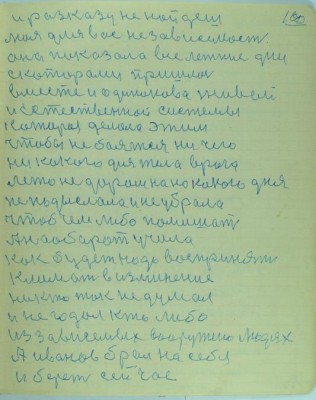 180
и разказу не найдеш
моя для вас независимост
она показала вселетние дни
с которами пришлос
вместе и одинакова
и естественной системы
которая делола этим
чтобы не баятся ни чего
ни какого для тела врага
лето не дурам на какова дня
не
чтоб чем либо помишат
А наоборот учила
как будет надо воспринят
Климат в изминение
никто так не думал
и не годал кто либо
из зависемых вооружено людях
А иванов брал на себя
и берет сей час